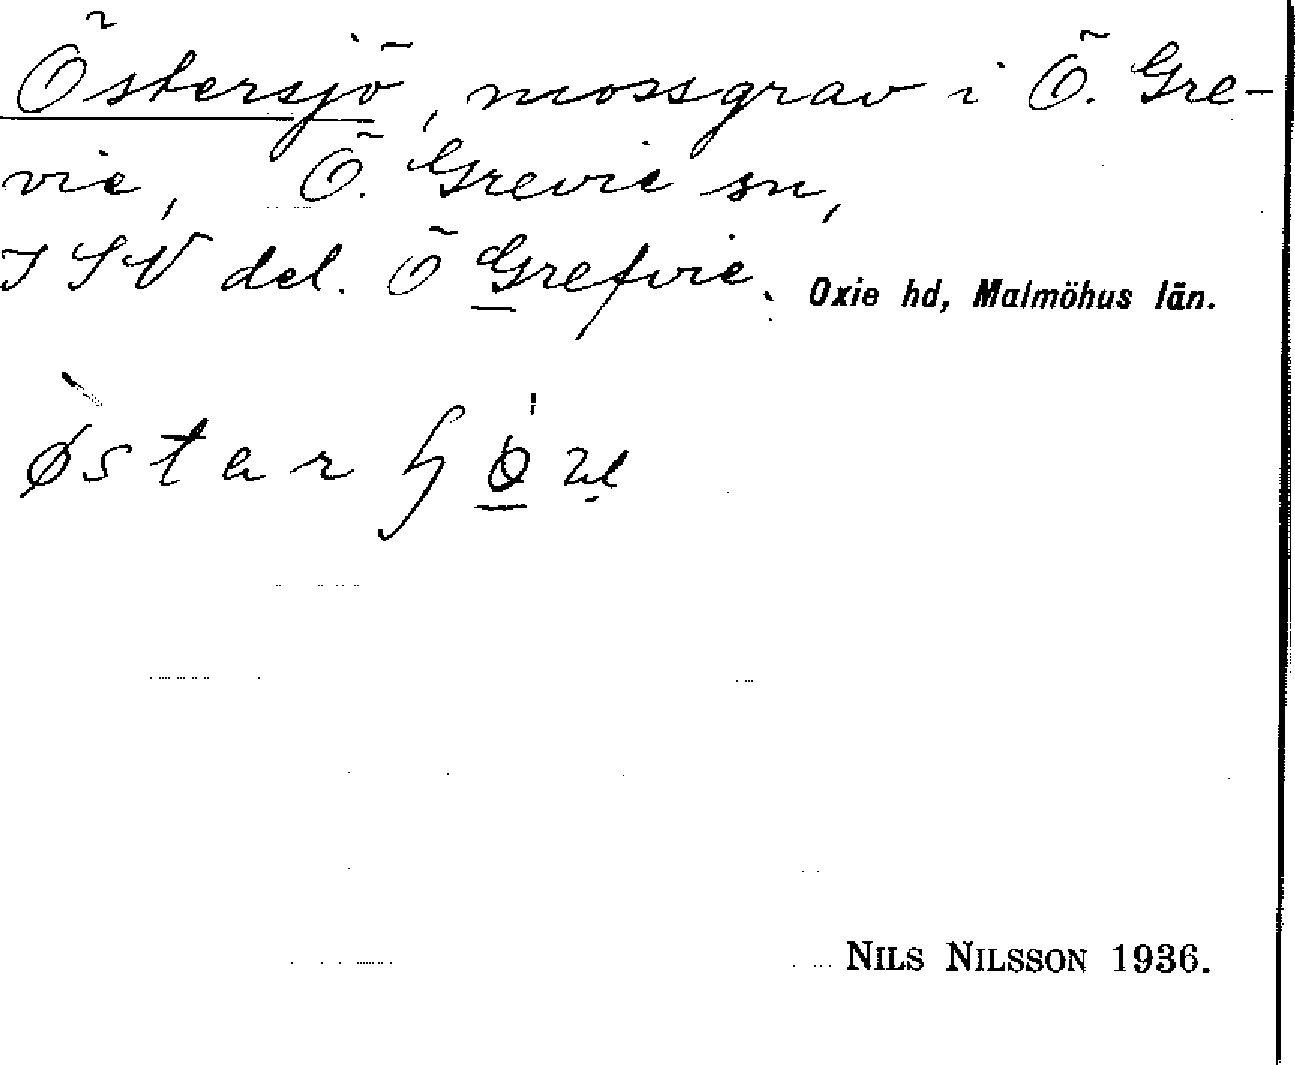 Östersjö, mossgrav i Ö. Gre-
vie, Ö. Grevie sn,
I SV del. Ö Grefvie. Oxie hd, Malmöhus län.
NILS NILSSON 1936.